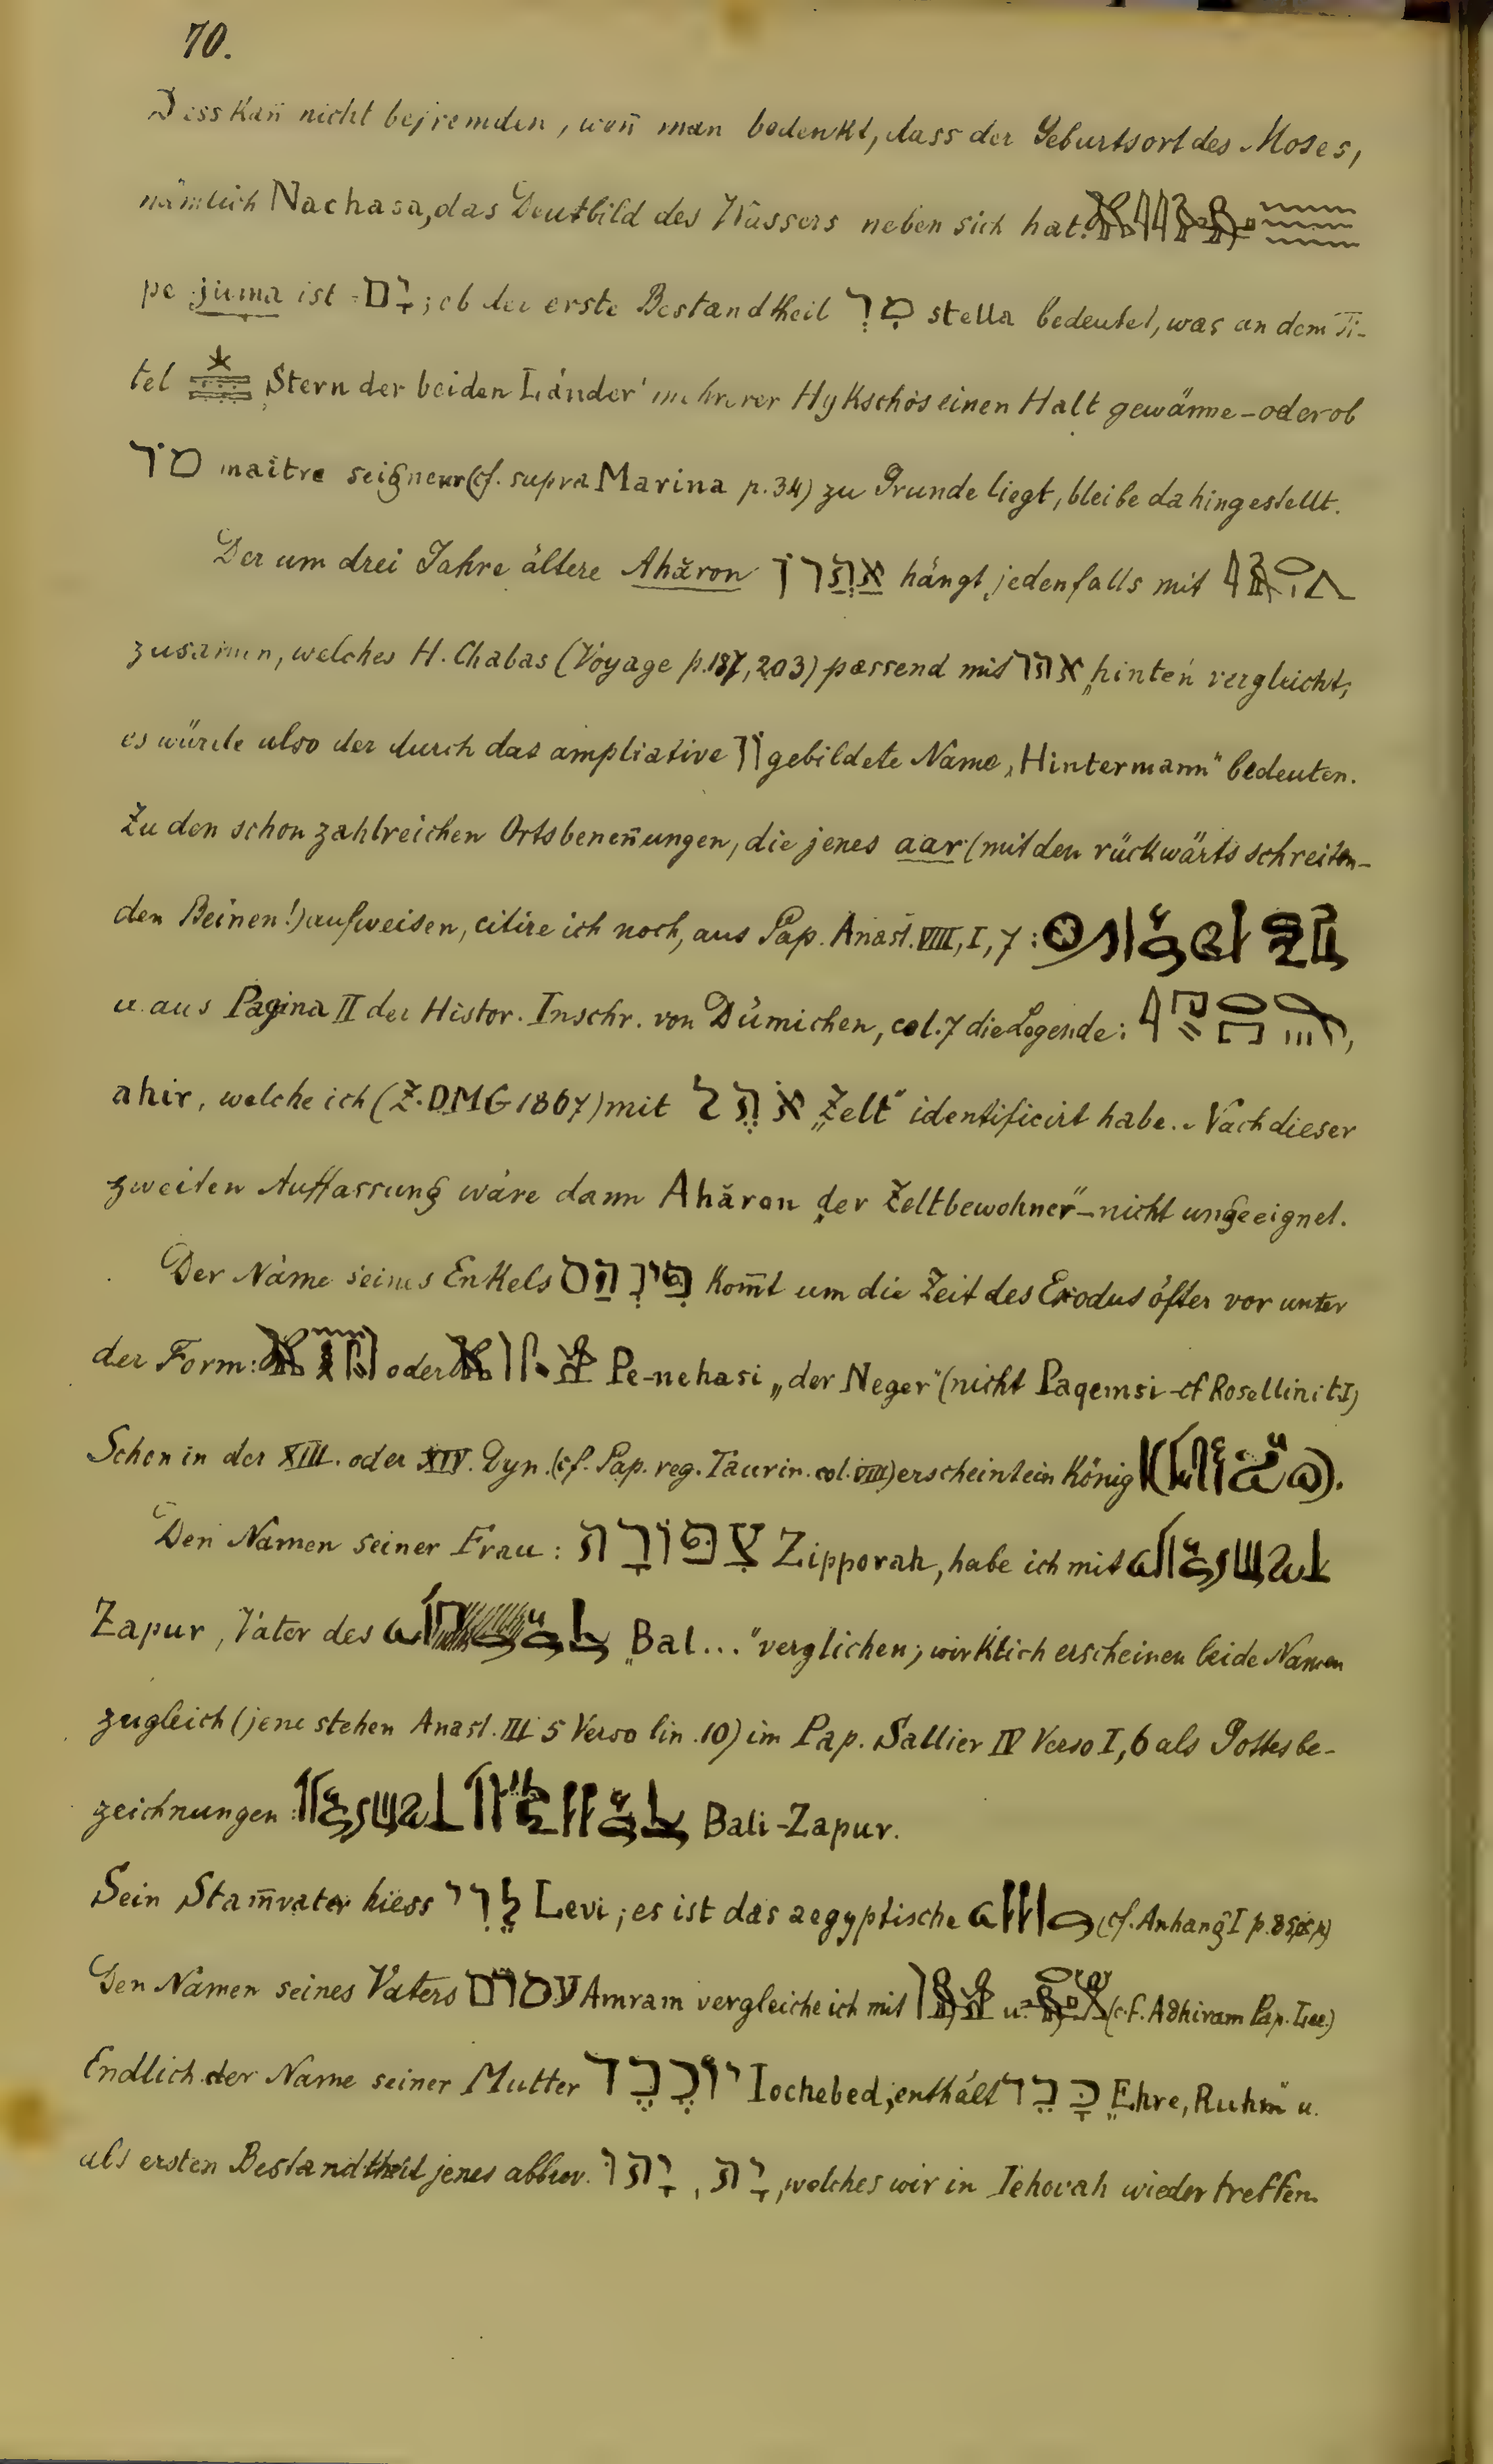 70.
Dess kañ nicht befremden, weñ man bedenkt, dass der Geburtsort des Moses,
nämlich Nachasa, das Deutbild des Wassers neben sich hat.
pe juma ist יָם; ob der erste Bestandtheil מָר stella bedeutet, was an dem Ti-
tel „Stern der beiden Länder“ mehrerer Hykschôs einen Halt gewänne – oder ob
מר maître seigneur (cf. supra Marina p. 34) zu Grunde liegt, bleibe dahingestellt.
Der um drei Jahre ältere Ahăron אַהֲרֹן hängt jedenfalls mit
zusamen, welches H. Chabas (Voyage p. 187, 203) passend mit אחר „hinten“ vergleicht;
es würde also der durch das ampliative וֹן gebildete Name „Hintermann“ bedeuten.
Zu den schon zahlreichen Ortsbeneñungen, die jenes aar (mit den rückwärts schreiten-
den Beinen!) aufweisen, citire ich noch, aus Pap. Anast. VIII, I, 7:
u. aus Pagina II der Histor. Inschr. von Dümichen, col. 7 die Legende:
ahir, welche ich (Z. DMG 1867) mit אֹהֶל „Zelt“ identificirt habe. Nach dieser
zweiten Auffassung wäre dann Ahăron „der Zeltbewohner“ – nicht ungeeignet.
Der Name seines Enkels פִּינְחָס kom̄t um die Zeit des Exodus öfter vor unter
der Form: oder Pe-nehasi „der Neger“ (nicht Paqemsi – cf Rosellini t. I)
Schon in der XIII. oder XIV. Dyn. (cf. Pap. reg. Taurin. col. VIII) erscheint ein König
Den Namen seiner Frau: צִפּוֹרָה Zipporah, habe ich mit
Zapur, Vater des „Bal...“ verglichen; wirklich erscheinen beide Namen
zugleich (jene stehen Anast. III 5 Verso lin. 10) im Pap. Sallier IV Verso I, 6 als Gottesbe-
zeichnungen: Bali-Zapur.
Sein Stam̄vater hiess לֵוִי Levi; es ist das aegyptische (cf. Anhang I p. 85
Den Namen seines Vaters עמרם Amram vergleiche ich mit u. (c.f. Adhiram Pap. Lee.)
Endlich der Name seiner Mutter יוֹכֶבֶד Iochebed, enthält כָּבֵד „Ehre, Ruhm“ u.
als ersten Bestandtheil jenes abbrev. יָהוּ, יָהּ, welches wir in Iehovah wieder treffen.